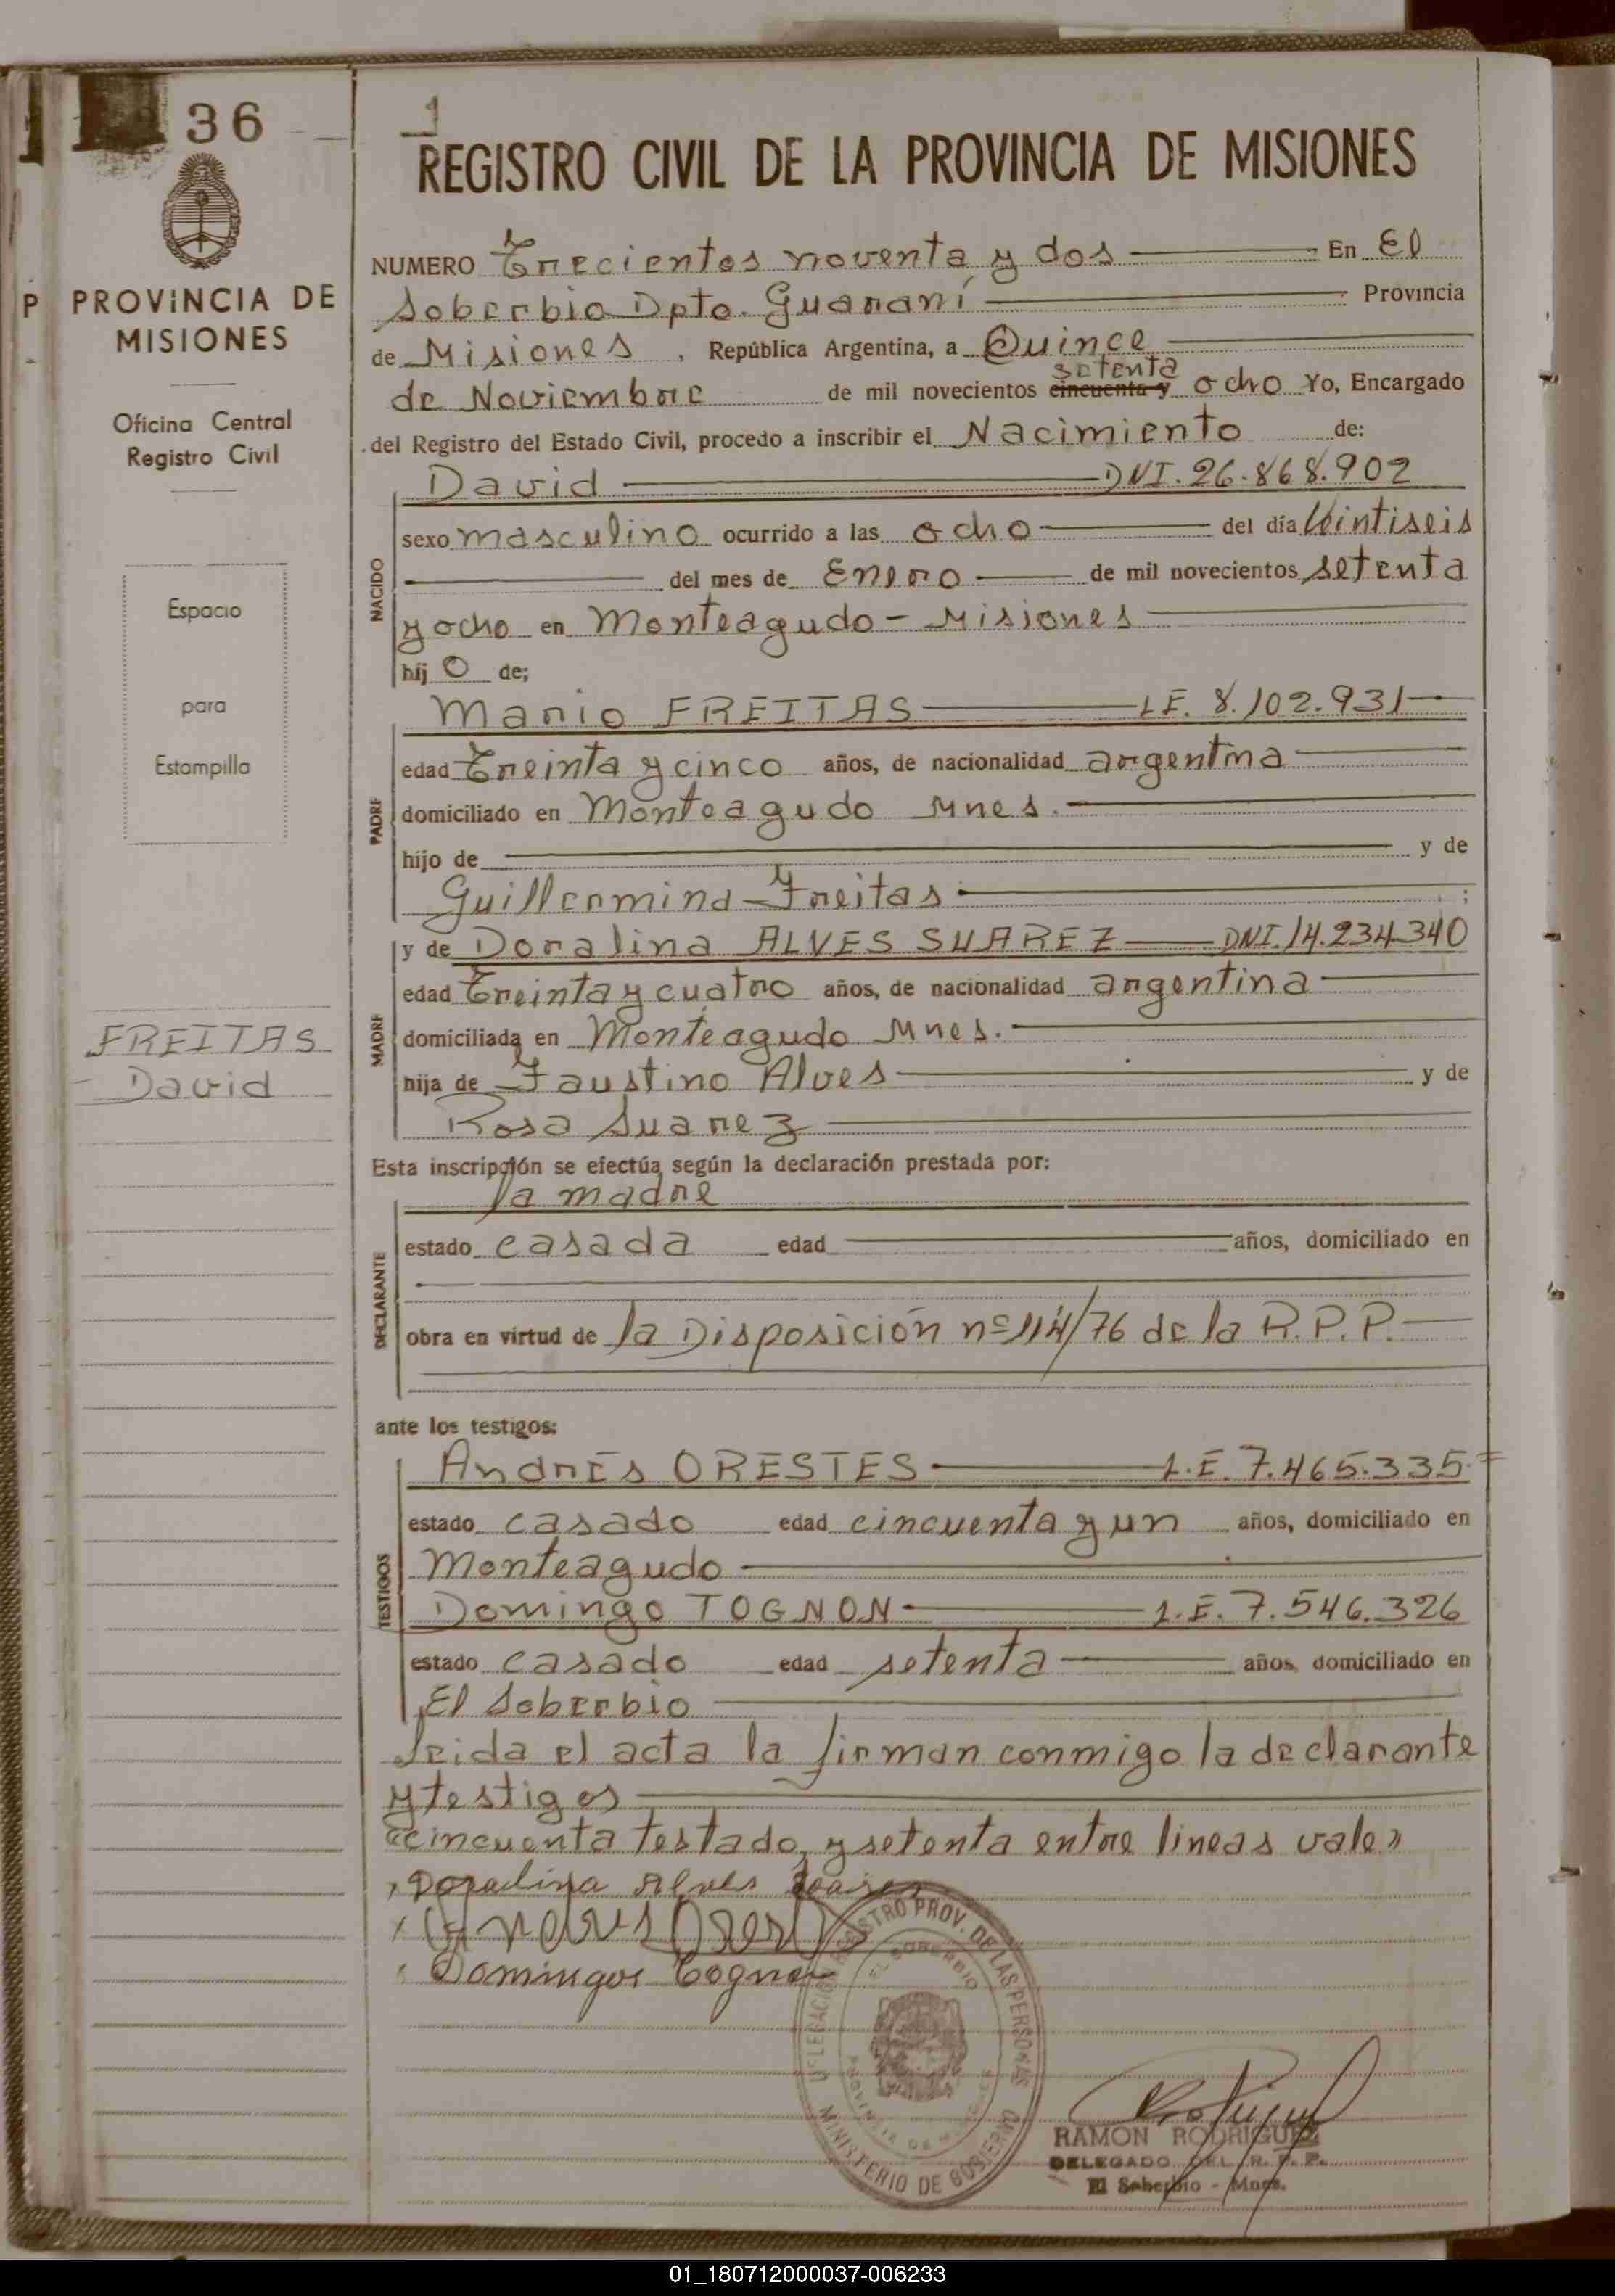 36
1
REGISTRO CIVIL DE LA PROVINCIA DE MISIONES
P PROVINCIA DE
MISIONES
Oficina Central
Registro Civil
Espacio
para
Estampilla
FREITAS
David
NUMERO Trecientos noventa y dos En El
Soberbio Dpto. Guaraní Provincia
de Misiones, República Argentina, a Quince
setenta
de Noviembre de mil novecientos cincuenta y ocho Yo, Encargado
del Registro del Estado Civil, procedo a inscribir el Nacimiento de:
David DNI. 26.868.902
NACIDO
sexo masculino ocurrido a las ocho del día Veintiseis
del mes de Enero de mil novecientos setenta
y ocho en Monteagudo - Misiones
hij o de;
Mario FREITAS LE. 8.102.931
PADRE
edad Treinta y cinco años, de nacionalidad argentina
domiciliado en Monteagudo Mnes.
hijo de y de
Guillermina Freitas ;
y de Doralina ALVES SUAREZ DNI. 14.234.340
MADRE
edad Treinta y cuatro años, de nacionalidad argentina
domiciliada en Monteagudo Mnes.
hija de Faustino Alves y de
Rosa Suarez
Esta inscripción se efectúa según la declaración prestada por:
la madre
DECLARANTE
estado casada edad años, domiciliado en
obra en virtud de la Disposición nº 114/76 de la R.P.P.
ante los testigos:
Andrés ORESTES L.E. 7.465.335.
TESTIGOS
estado casado edad cincuenta y un años, domiciliado en
Monteagudo
Domingo TOGNON L.E. 7.546.326
estado casado edad setenta años, domiciliado en
El Soberbio
Leida el acta la firman conmigo la declarante
y testigos
"cincuenta testado, y setenta entre lineas vale"
Doralina Alves
Domingos
DELEGACION REGISTRO PROV. DE LAS PERSONAS
EL SOBERBIO
PROVINCIA DE MISIONES
MINISTERIO DE GOBIERNO
RAMON RODRIGUEZ
DELEGADO DEL R. P. P.
El Soberbio - Mnes.
01_180712000037-006233